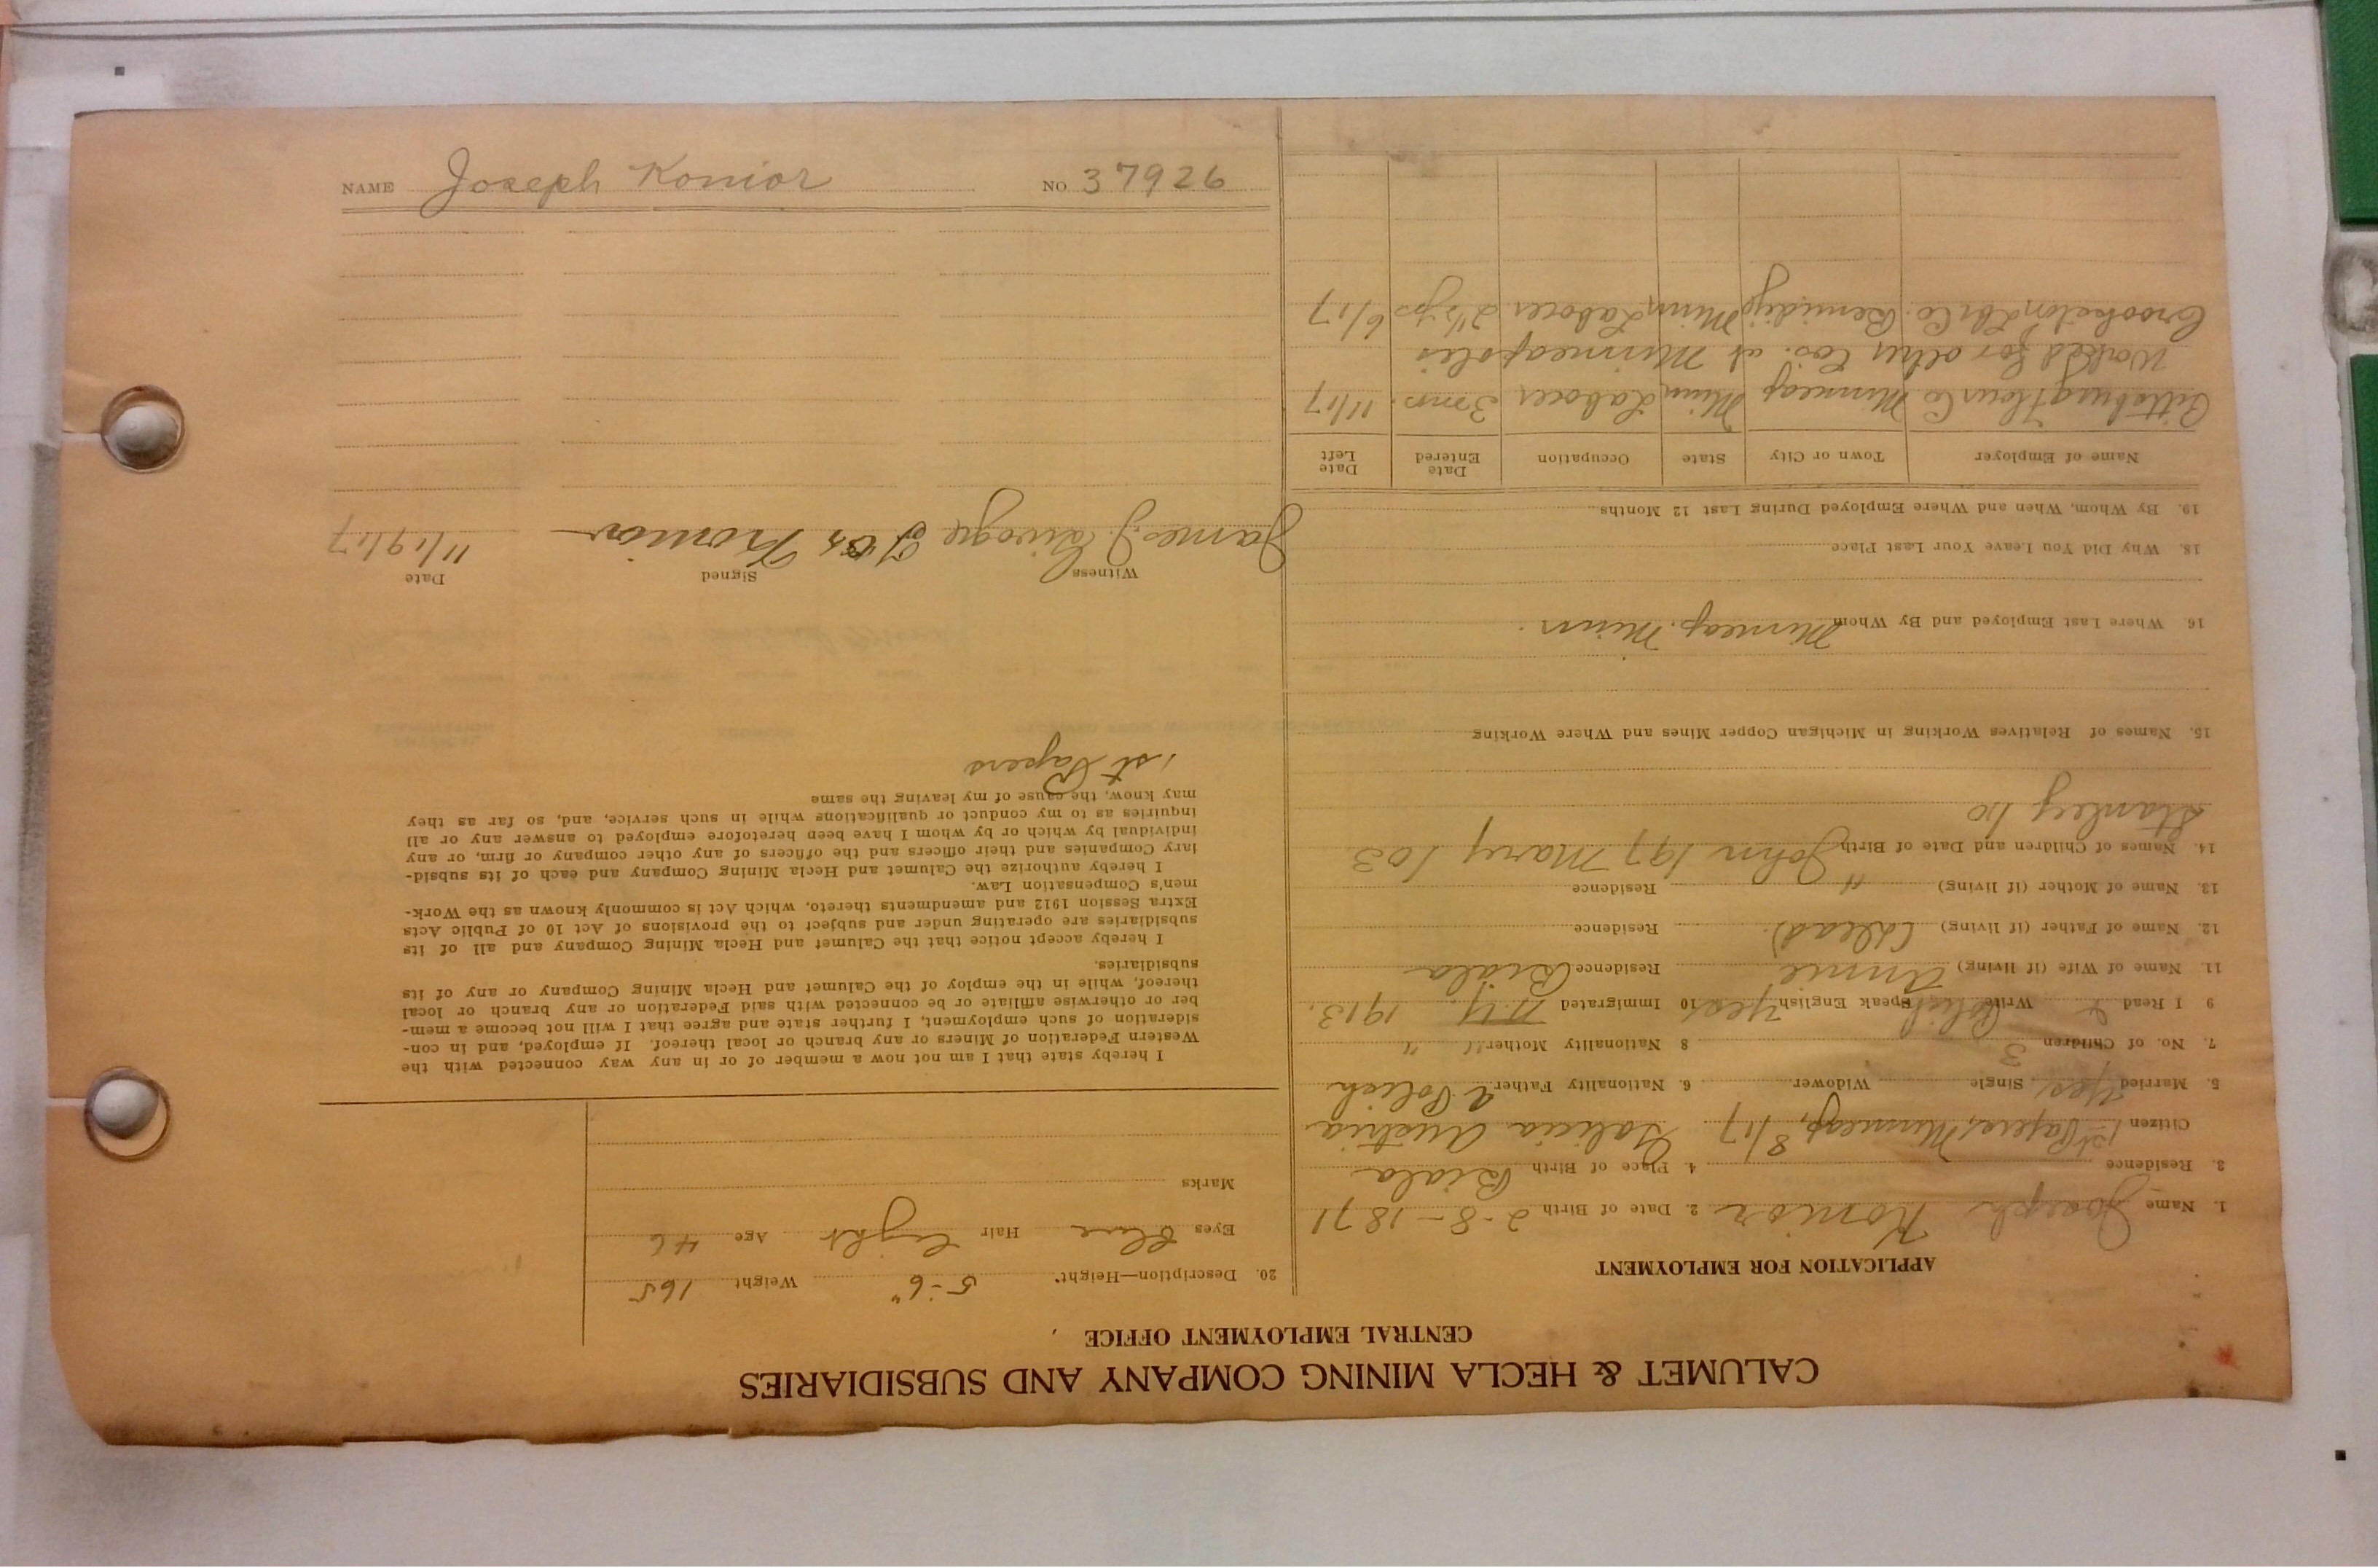 CALUMET & HECLA MINING COMPANY AND SUBSIDIARIES
CENTRAL EMPLOYMENT OFFICE
APPLICATION FOR EMPLOYMENT
1. Name Joseph Konior 2. Date of Birth 2-8-1871
3. Residence 4. Place of Birth Biala
Citizen 1st Papers, Minneap, 8/17 Galicia Austria
5. Married Yes Single Widower 6. Nationality Father Polish
7. No. of Children 3 8 Nationality Mother "
9 I Read & Write Polish Speak English Yes 10 Immigrated N.Y. 1913.
11. Name of Wife (if living) Annie Residence Biala
12. Name of Father (if living) (dead) Residence
13. Name of Mother (if living) " Residence
14. Names of Children and Date of Birth John 197 Mary 103
Stanley 110
15. Names of Relatives Working in Michigan Copper Mines and Where Working
16. Where Last Employed and By Whom Minneap, Minn.
18. Why Did You Leave Your Last Place
19. By Whom, When and Where Employed During Last 12 Months
Name of Employer Town or City State Occupation Date Entered Date Left
Flour Co. Minneap Minn Laborer 3 mos. 11/17
Worked for other Cos. at Minneapolis
Crookston Lbr Co. Bemidji Minn Laborer 2 1/2 yrs 6/17
20. Description—Height 5-6" Weight 165
Eyes Blue Hair Light Age 46
Marks
I hereby state that I am not now a member of or in any way connected with the
Western Federation of Miners or any branch or local thereof. If employed, and in con-
sideration of such employment, I further state and agree that I will not become a mem-
ber or otherwise affiliate or be connected with said Federation or any branch or local
thereof, while in the employ of the Calumet and Hecla Mining Company or any of its
subsidiaries.
I hereby accept notice that the Calumet and Hecla Mining Company and all of its
subsidiaries are operating under and subject to the provisions of Act 10 of Public Acts
Extra Session 1912 and amendments thereto, which Act is commonly known as the Work-
men's Compensation Law.
I hereby authorize the Calumet and Hecla Mining Company and each of its subsid-
iary Companies and their officers and the officers of any other company or firm, or any
individual by which or by whom I have been heretofore employed to answer any or all
inquiries as to my conduct or qualifications while in such service, and, so far as they
may know, the cause of my leaving the same
1st Papers
Witness Signed Date
James J. Konior 11/19/17
NAME Joseph Konior NO 37926